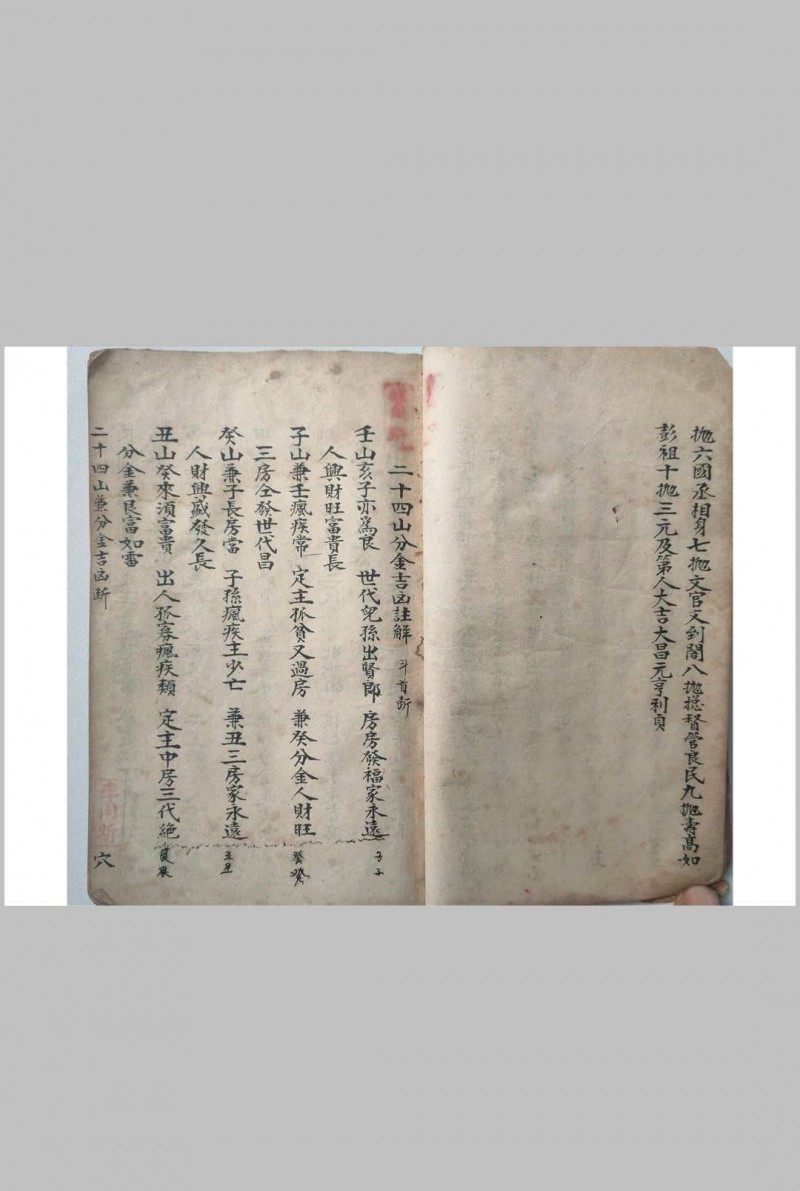 拋六國丞相身七拋文官文到閣八拋捴督管良民九拋壽高如
彭祖十拋三元及第人大吉大昌元亨利貞
二十四山分金吉凶註解 斗首斷
壬山亥子亦爲良 世代兒孫出賢郎 房房發福家永遠
人興財旺富貴長
子山兼壬瘋疾常 定主孤貧又過房 兼癸分金人財旺
三房仝發世代昌
癸山兼子長房當 子孫瘋疾主少亡 兼丑三房家永遠
人財興盛發久長
丑山癸來須富貴 出人孤寡瘋疾類 定主中房三代絶
分金兼艮富如雷
二十四山兼分金吉凶斷 穴